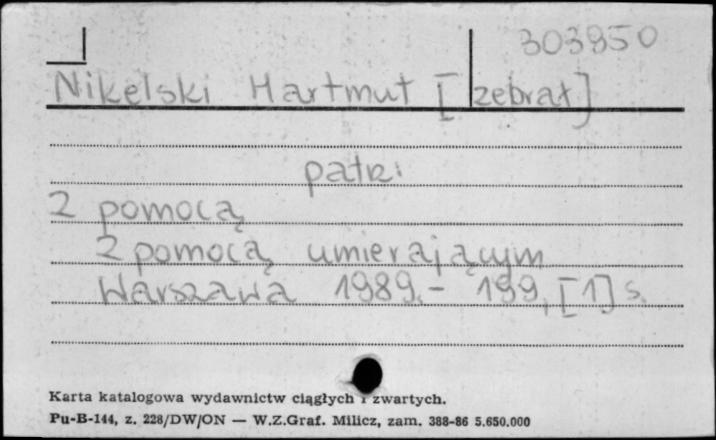 303950
Nikelski Hartmut [zebrał]
patrz:
Z pomocą
Z pomocą umierającym
Warszawa 1989. - 199, [1] s.
Karta katalogowa wydawnictw ciągłych i zwartych.
Pu-B-144, z. 228/DW/ON — W.Z.Graf. Milicz, zam. 388-86 5.650.000